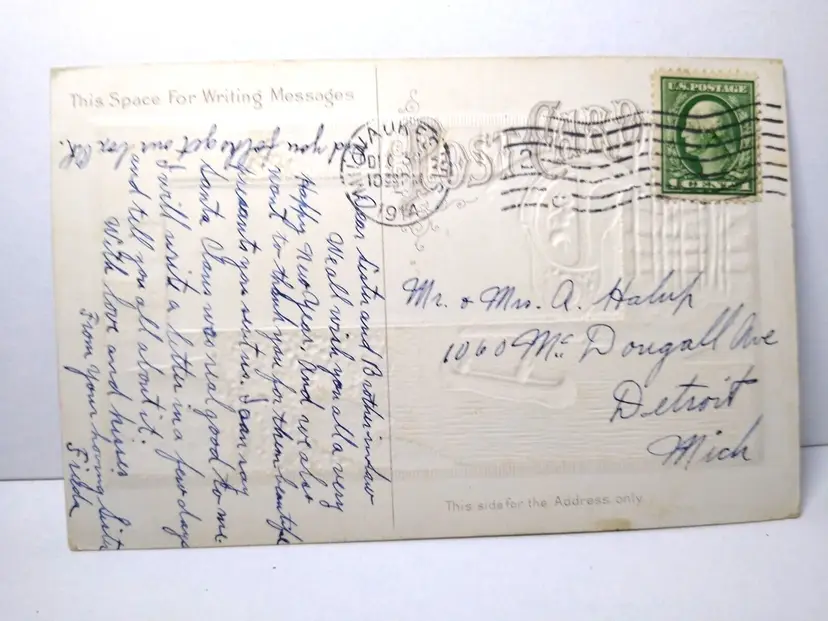 This Space For Writing Messages
POST CARD
U.S. POSTAGE
1 CENT 1
MILWAUKEE, WIS.
DEC 31
10
1914
Dear Sister and Brother in law
We all wish you all a very
Happy New Year. And we also
want to thank you for them beautiful
presants you sent us. I can say
Santa Claus was real good to me.
I will write a letter in a few days
and tell you all about it.
With love and kisses
From your loving Sister
Frieda
Did you folks get our box
Mr. & Mrs. A. Halup
1060 Mc Dougall Ave
Detroit
Mich
This side for the Address only